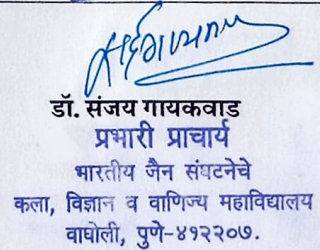 डॉ. संजय गायकवाड
प्रभारी प्राचार्य
भारतीय जैन संघटनेचे
कला, विज्ञान व वाणिज्य महाविद्यालय
वाघोली, पुणे-४१२२०७.